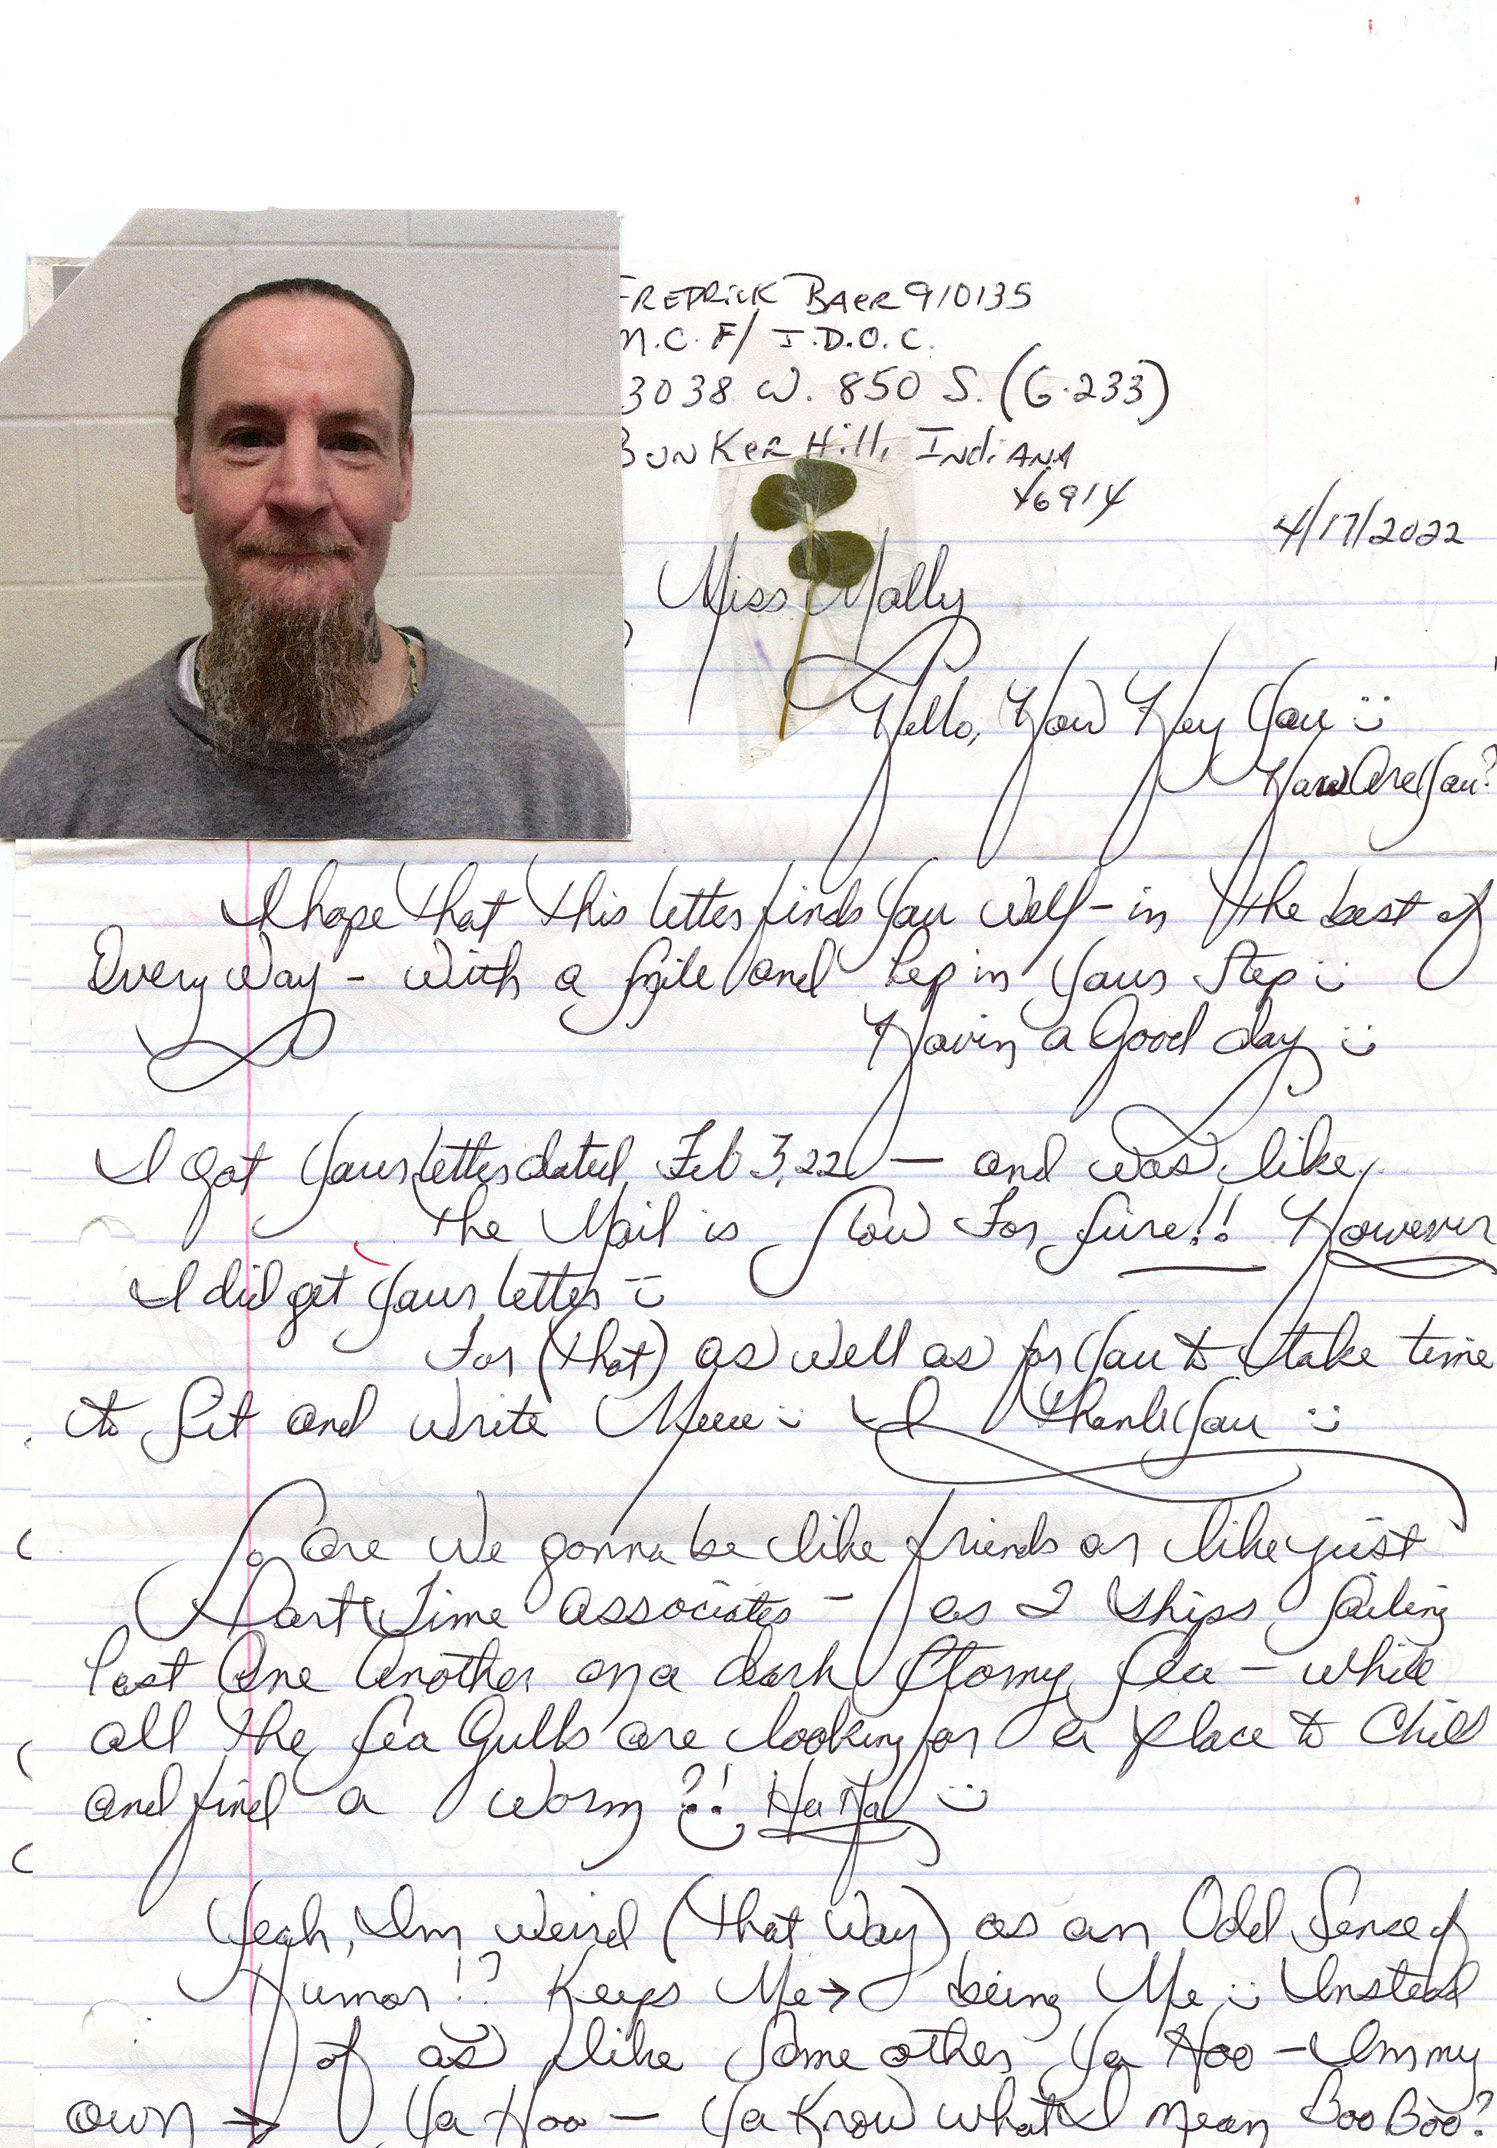 FREDRICK BAER 910135
M.C.F/ I.D.O.C.
3038 W. 850 S. (G-233)
BUNKER Hill, INdiANA
46914
4/17/2022
Miss Molly
Hello, How Hey You :)
How Are You?
I hope that this letter finds you Well - in the best of
Every Way - With a Smile and Pep in Your Step :)
Havin a Good day :)
I got Your letter dated, Feb 3, 22 — and was like,
the Mail is Slow For Sure!! However
I did get Your letter :)
For (that) as well as for You to take time
to Sit and write Meee :) I thank You :)
So are We gonna be like friends or like just
Part Time associates - as 2 Ships Sailing
Past One Another on a dark Stormy Sea - while
all the Sea Gulls are looking for a place to Chill
and find a Worm ?! Ha Ha :)
Yeah, Im weird (that Way) as an Odd Sense of
Humor!? Keeps Me → being Me :) Instead
of as like Some other Ya Hoo - Im my
own → Ya Hoo — Ya Know what I mean Boo Boo?